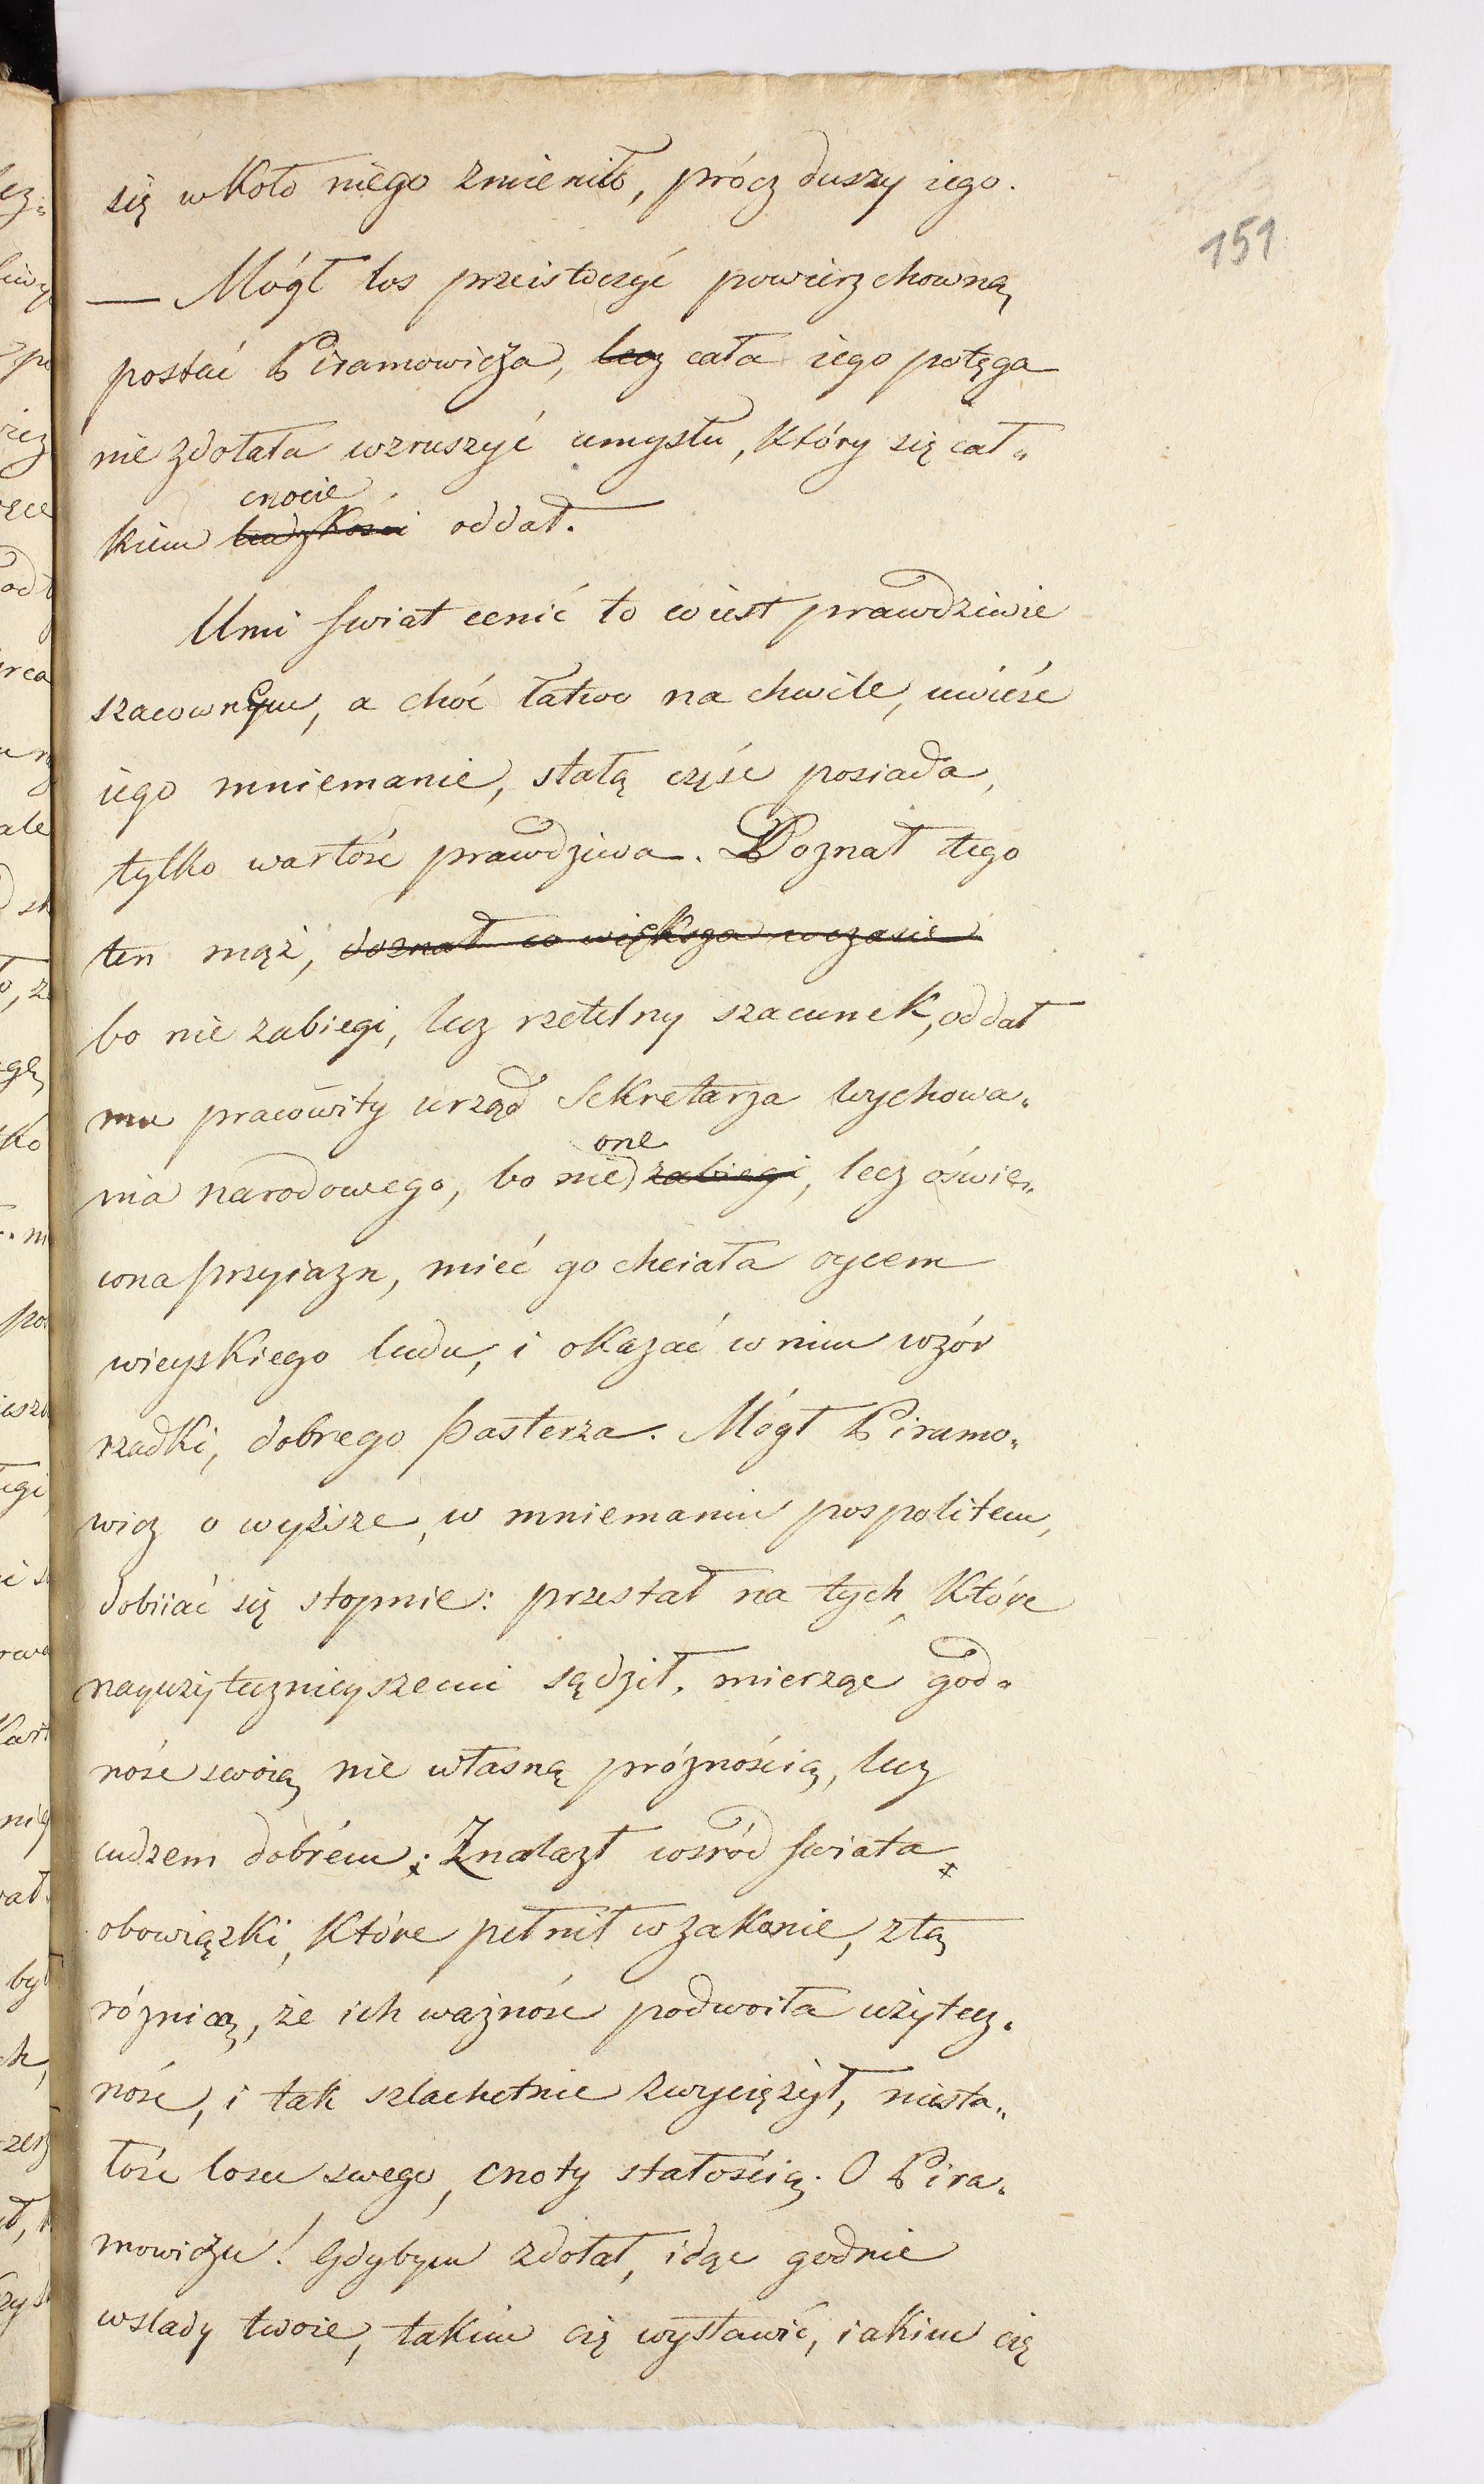 151
się wkoło niego zmieniło, prócz duszy iego.
— Mógł los przeistoczyć powierzchowną
postać Piramowicza, lecz cała iego potęga
nie zdołała wzruszyć umysłu, który się cał„
cnocie
kiem ludzkości oddał.
Umi świat cenić to co iest prawdziwie
szacownem, a choć łatwo na chwile, uwieść
iego mniemanie, stałą cześć posiada,
tylko wartość prawdziwa. Doznał tego
ten mąż, doznał co większa w czasie
bo nie zabiegi, lecz rzetelny szacunek, oddał
mu pracowity urząd Sekretarza wychowa„
one
nia narodowego, bo nie zabiegi, lecz oświe„
cona przyiazn, mieć go chciała oycem
wieyskiego ludu, i okazać w nim wzór
rzadki, dobrego pasterza. Mógł Piramo„
wicz o wyższe, w mniemaniu pospolitem,
dobiiać się stopnie: przestał na tych, które
nayużytecznieyszemi sądził, mierząc god„
ność swoią, nie własną próżnością, lecz
cudzem dobrém; Znalazł wśród świata
obowiązki, które pełnił w zakonie, z tą
różnicą, że ich ważność podwoiła użytecz„
ność, i tak szlachetnie zwyciężył, niesta„
łość losu swego, cnoty stałością. O Pira„
mowiczu! Gdybym zdołał, idąc godnie
w slady twoie, takim cię wystawić, iakim cię